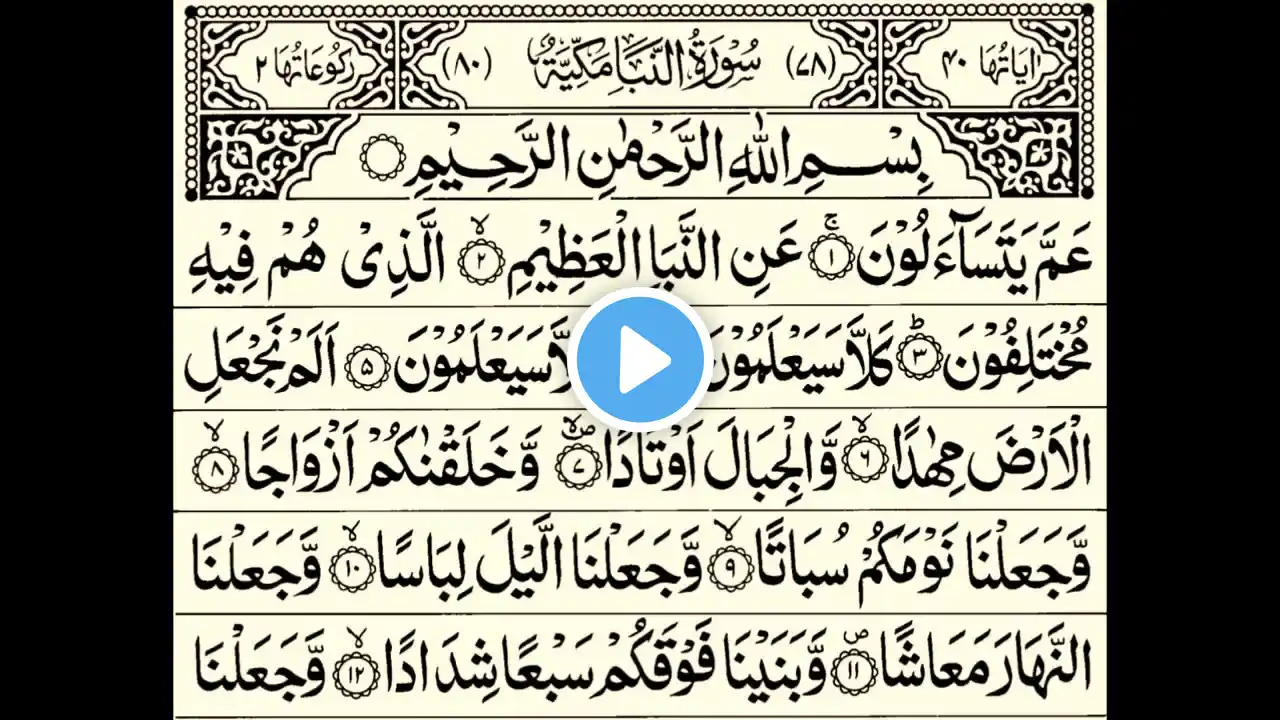 اٰیاتُهَا ۴۰ (۷۸) سُوْرَةُ النَّبَاِ مَكِّيَّةٌ (۸۰) رُكُوْعَاتُهَا ۲
بِسْمِ اللّٰهِ الرَّحْمٰنِ الرَّحِيْمِ
عَمَّ يَتَسَآءَلُوْنَ ۚ‏﴿۱﴾ عَنِ النَّبَاِ الْعَظِيْمِ ۙ‏﴿۲﴾ الَّذِىْ هُمْ فِيْهِ
مُخْتَلِفُوْنَ ؕ‏﴿۳﴾ كَلَّا سَيَعْلَمُوْنَ سَيَعْلَمُوْنَ ﴿۵﴾ اَلَمْ نَجْعَلِ
الْاَرْضَ مِهٰدًا ۙ‏﴿۶﴾ وَّالْجِبَالَ اَوْتَادًا ۙ‏ص﴿۷﴾ وَّخَلَقْنٰكُمْ اَزْوَاجًا ۙ‏﴿۸﴾
وَّجَعَلْنَا نَوْمَكُمْ سُبَاتًا ۙ‏﴿۹﴾ وَّجَعَلْنَا الَّيْلَ لِبَاسًا ۙ‏﴿۱۰﴾ وَّجَعَلْنَا
النَّهَارَ مَعَاشًا ص﴿۱۱﴾ وَّبَنَيْنَا فَوْقَكُمْ سَبْعًا شِدَادًا ۙ‏﴿۱۲﴾ وَّجَعَلْنَا